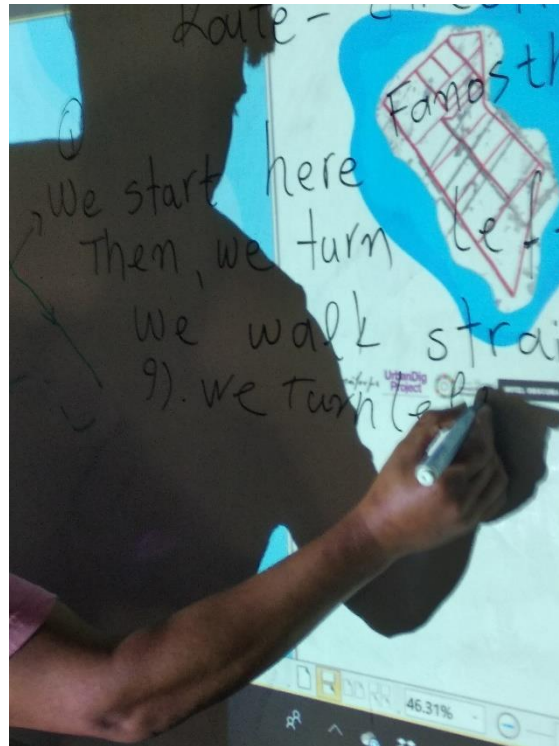 Route-
Famosth
①
We start here
Then, we turn lef
We walk strai
9). We turn lef
UrbanDig
Project
46.31%